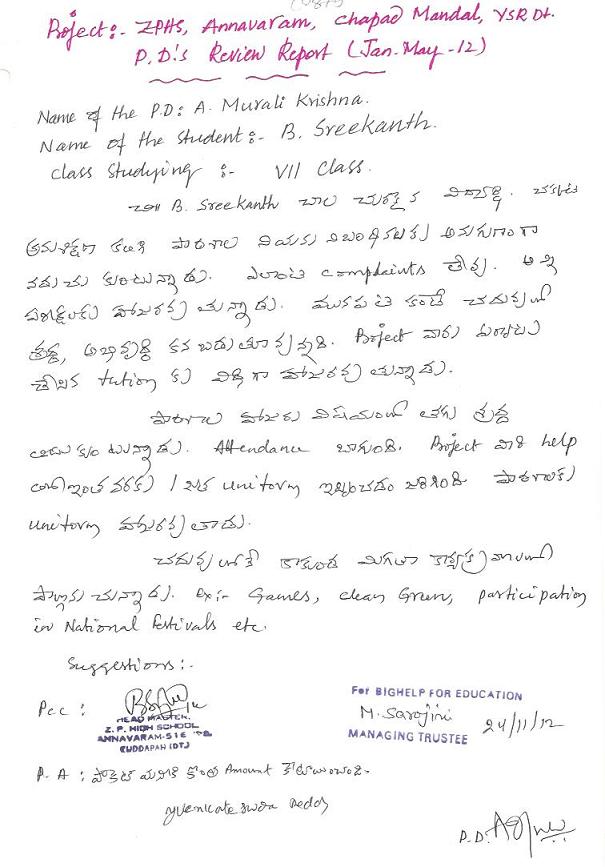 Project:- ZPHS, Annavaram, Chapad Mandal, YSR Dt.
P.D.'s Review Report (Jan-May-12)
Name of the P.D: A. Murali Krishna.
Name of the student:- B. Sreekanth.
Class Studying :- VII Class.
B. Sreekanth చాల చురుకైన విద్యార్థి.
కలిగి పాఠశాల నియమ నిబంధనలకు అనుగుణంగా
నడుచు కుంటున్నాడు. ఎలాంటి complaints లేవు. అన్ని
పరీక్షలకు హాజరవు తున్నాడు. కంటే చదువులో
శ్రద్ధ, అభివృద్ధి కన బడుతూ వున్నది. Project వారు
tution కు విధి గా హాజరవు తున్నాడు.
పాఠశాల హాజరు విషయంలో తగు శ్రద్ధ
Attendance బాగుంది. Project వారి help
ఇంత వరకు 1 జత uniform ఇవ్వడం జరిగింది పాఠశాలకు
uniform
చదువు లోనే కాకుండ మిగతా కార్యక్రమాలలో
పాల్గొను చున్నాడు. Ex:- Games, clean Green, participation
in National Festivals etc.
Suggestions:-
Pcc :
HEAD MASTER,
Z. P. HIGH SCHOOL
ANNAVARAM-516
CUDDAPAH (DT)
For BIGHELP FOR EDUCATION
M. Sarojini
MANAGING TRUSTEE
24/11/12
P. A : కొంత Amount
Reddy
P.D.